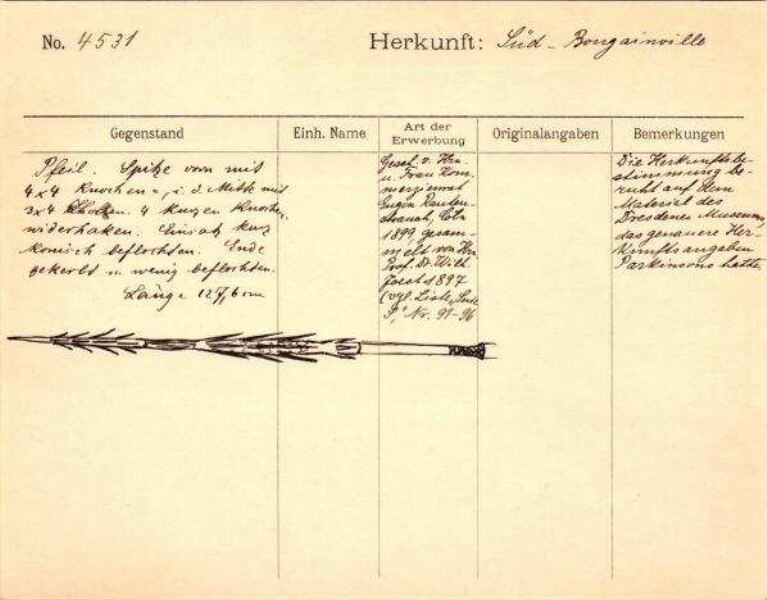 No. 4531
Herkunft: Süd-Bougainville
Gegenstand
Einh. Name
Art der Erwerbung
Originalangaben
Bemerkungen
Pfeil. Spitze vorn mit
4x4 Knochen-, i. d. Mitte mit
3x4 4 kurzen Knochen-
widerhaken. Einsatz kurz
konisch beflochten. Ende
gekerbt u. wenig beflochten.
Länge 127,6 cm
Gesch. v. Hrn.
u. Frau Kom-
merzienrat
Eugen Rauten-
strauch, Cöln
1899, gesam-
melt von Hrn
Prof. Dr. Wilh.
Joest 1897
(vgl. Liste „Serie
P," Nr. 91-96
Die Herkunftsbe-
stimmung be-
ruht auf dem
Material des
Dresdener Museums,
das genauere Her-
kunftsangaben
Parkinsons hatte.